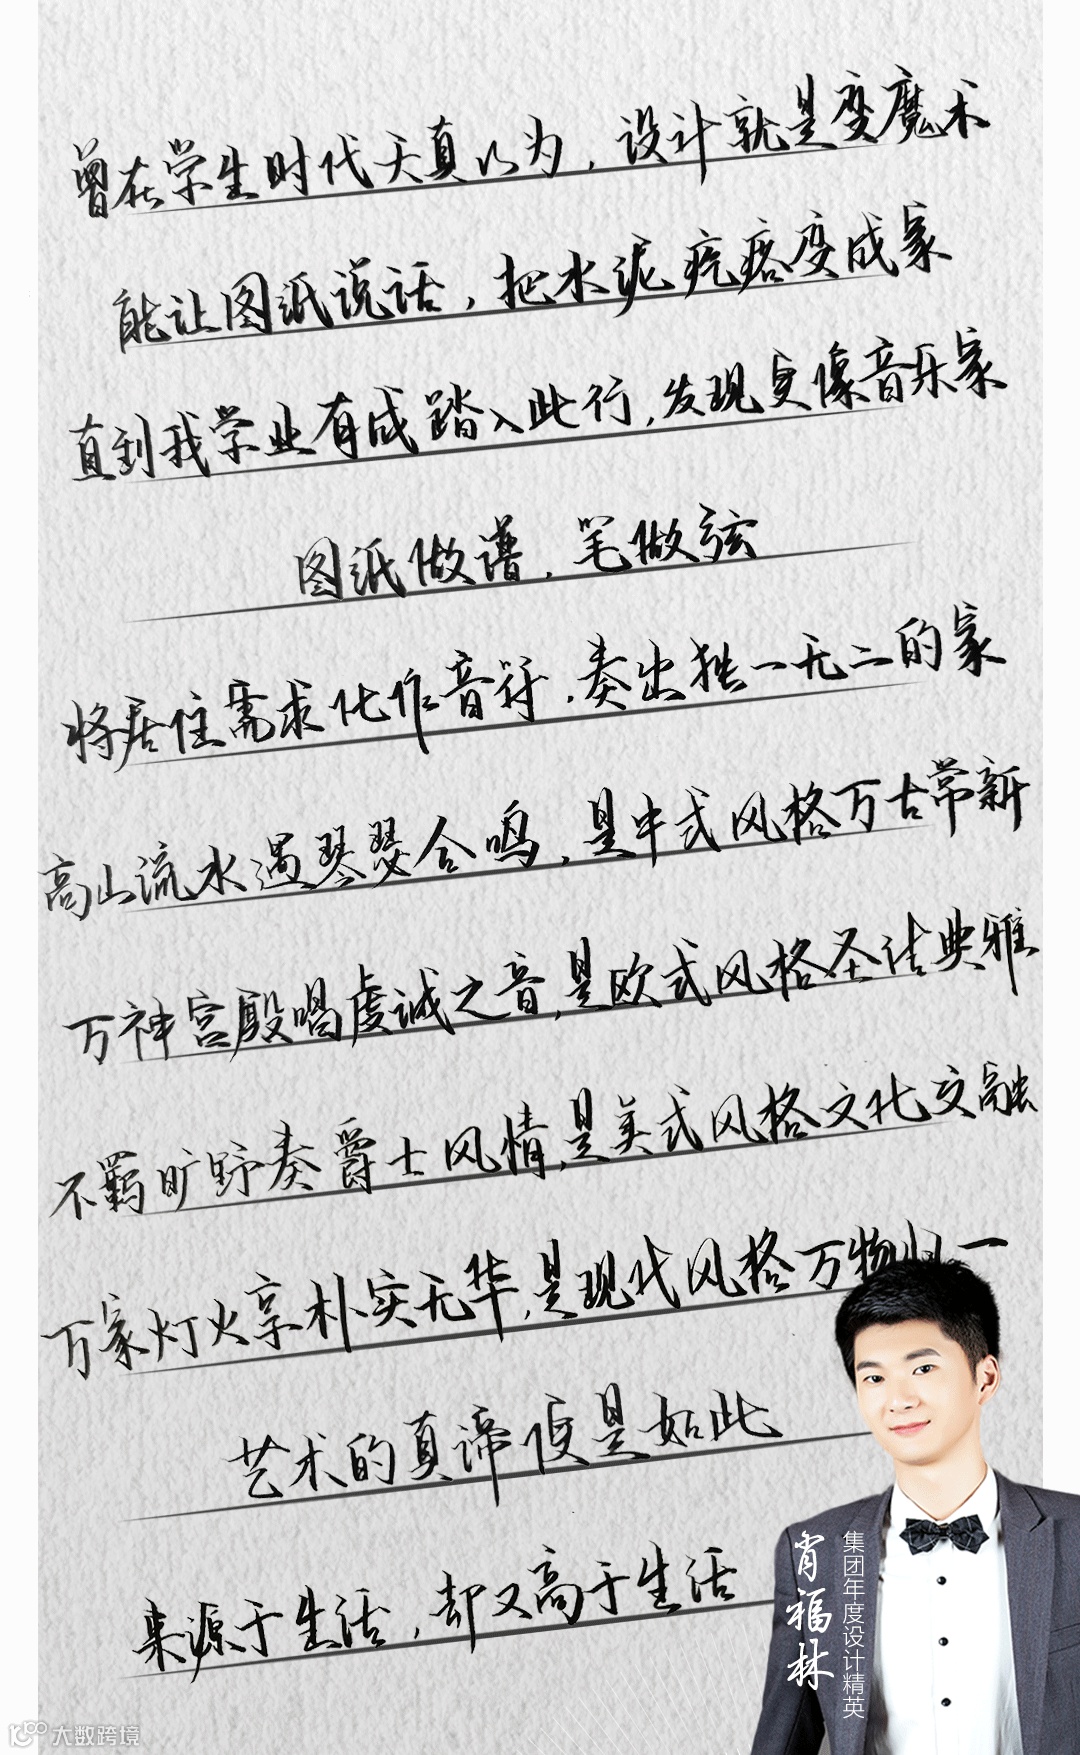 曾在学生时代天真以为，设计就是变魔术
能让图纸说话，把水泥疙瘩变成家
直到我学业有成踏入此行，发现更像音乐家
图纸做谱，笔做弦
将居住需求化作音符，奏出独一无二的家
高山流水遇琴瑟合鸣，是中式风格万古常新
万神宫殿唱虔诚之音，是欧式风格圣洁典雅
不羁旷野奏爵士风情，是美式风格文化交融
万家灯火享朴实无华，是现代风格万物归一
艺术的真谛便是如此
来源于生活，却又高于生活
集团年度设计精英
肖福林
大数跨境